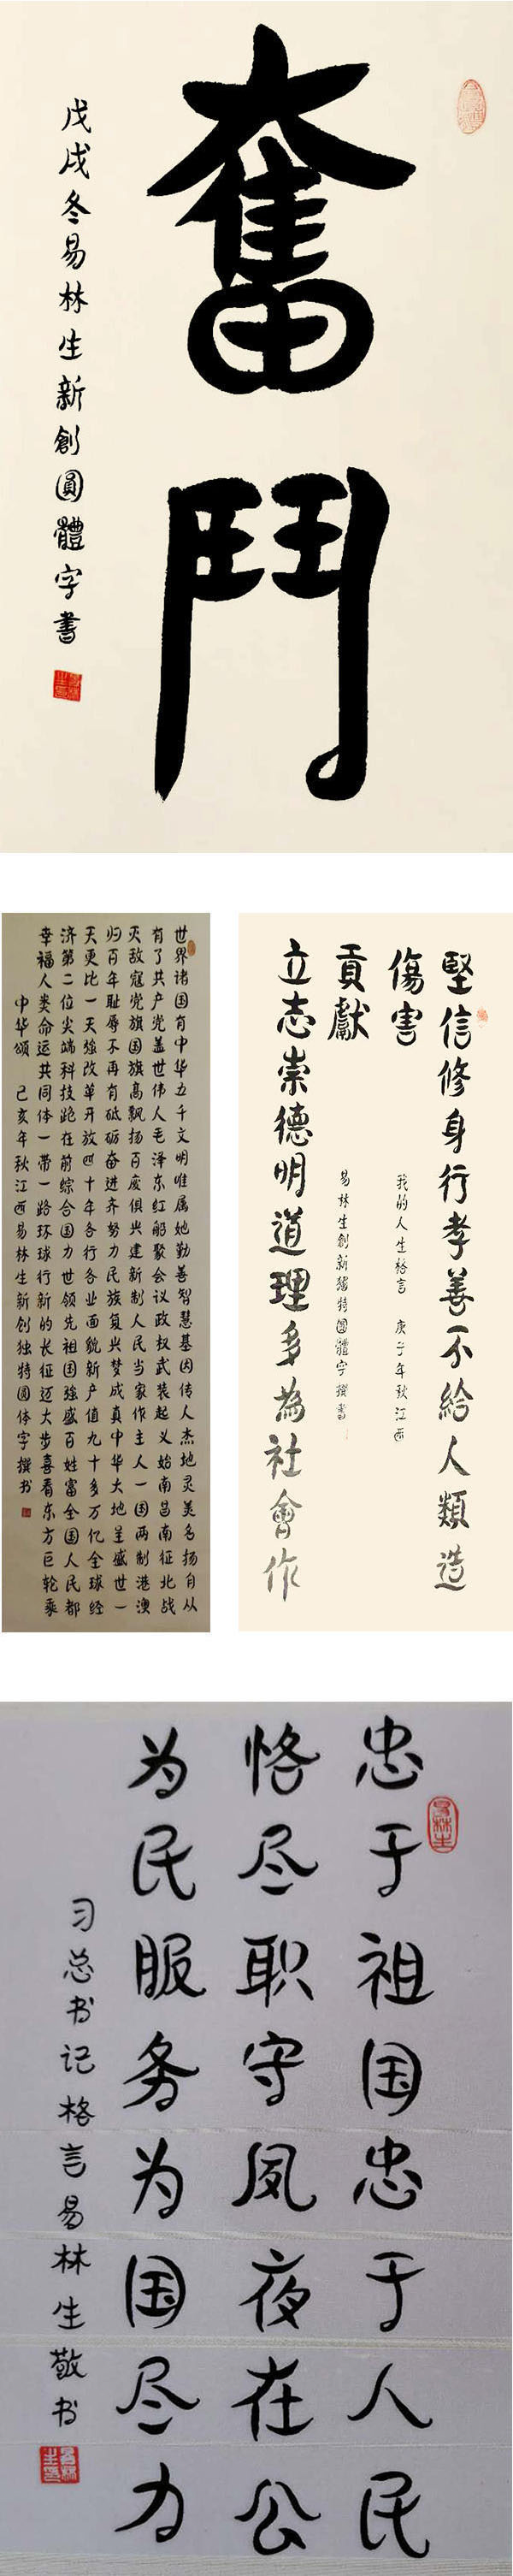 奮鬥
戊戌冬易林生新創圓體字書
世界诸国有中华五千文明唯属她勤善智慧基因传人杰地灵美名扬自从
有了共产党盖世伟人毛泽东红船聚会议政权武装起义始南昌南征北战
灭敌寇党旗国旗高飘扬百废俱兴建新制人民当家作主人一国两制港澳
归百年耻辱不再有砥砺奋进齐努力民族复兴梦成真中华大地呈盛世一
天更比一天强改革开放四十年各行各业面貌新产值九十多万亿全球经
济第二位尖端科技跑在前综合国力世领先祖国强盛百姓富全国人民都
幸福人类命运共同体一带一路环球行新的长征迈大步喜看东方巨轮乘
中华颂 己亥年秋江西易林生新创独特圆体字撰书
堅信修身行孝善不給人類造
傷害
我的人生格言 庚子年秋江西
立志崇德明道理多為社會作
貢獻
易林生創新獨特圓體字撰書
忠于祖国忠于人民
恪尽职守夙夜在公
为民服务为国尽力
习总书记格言易林生敬书
易林生